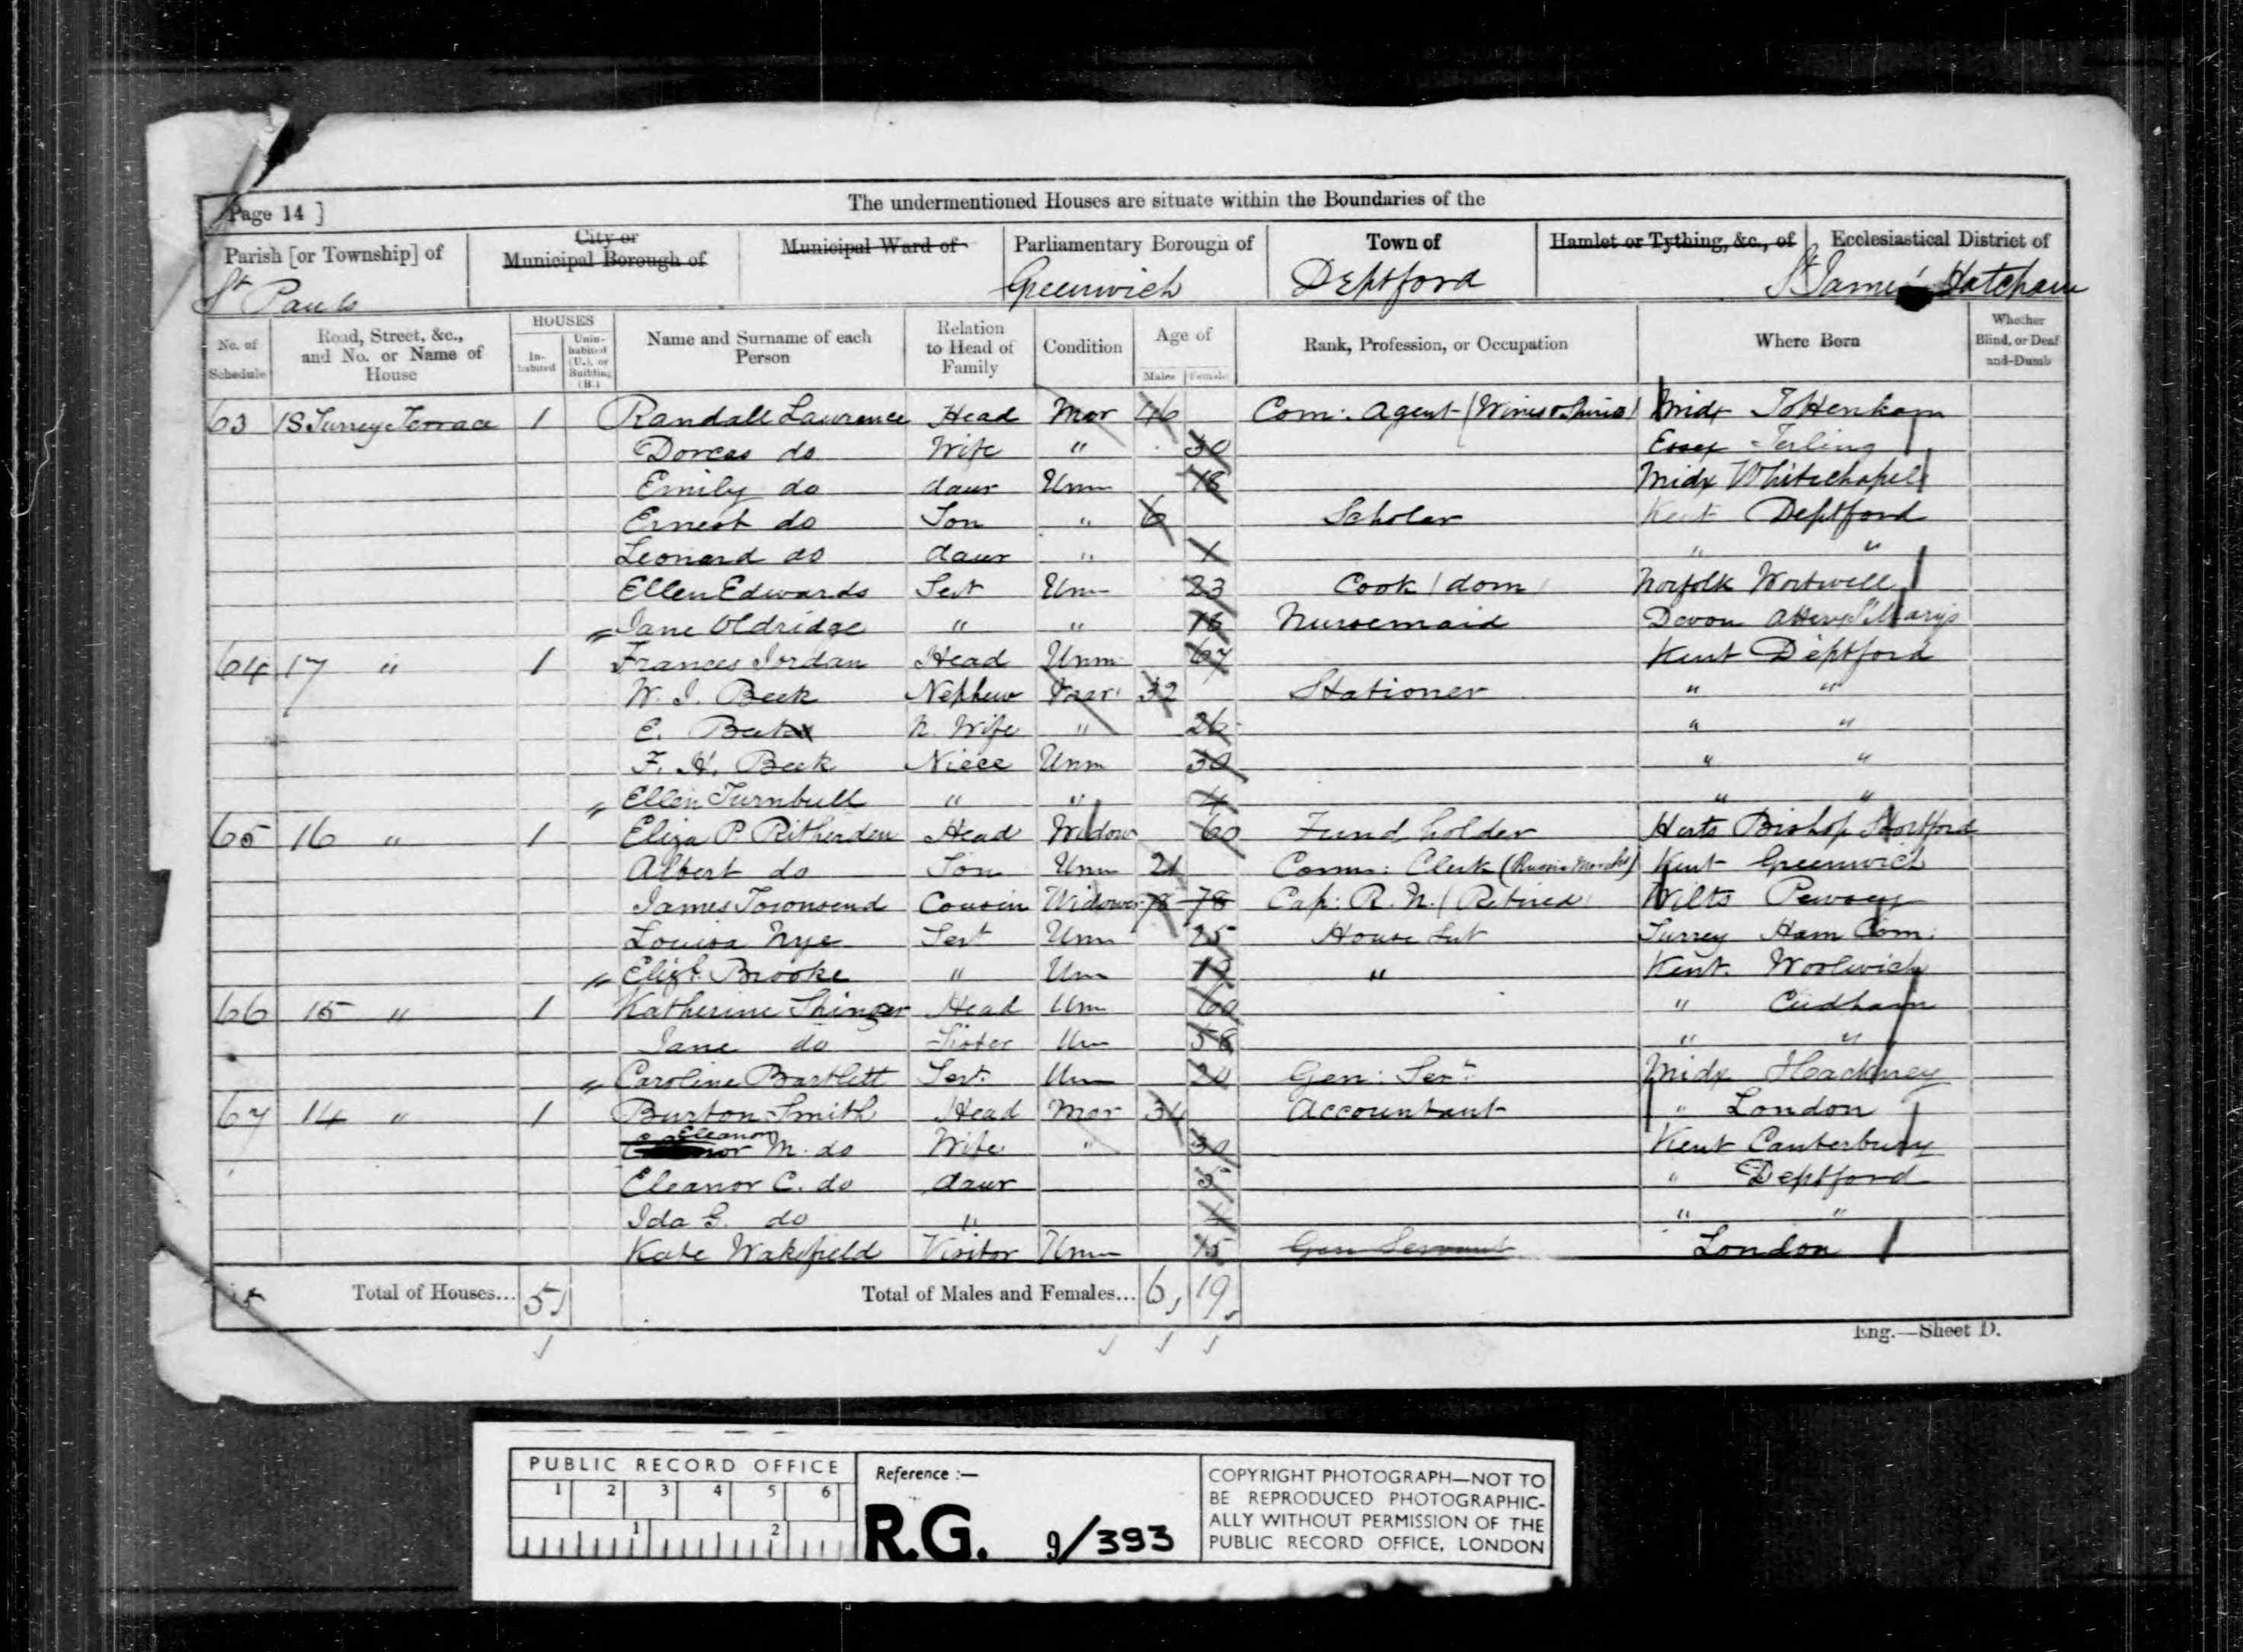 Page 14 ]
The undermentioned Houses are situate within the Boundaries of the
Parish [or Township] of
City or Municipal Borough of
Municipal Ward of
Parliamentary Borough of
Town of
Hamlet or Tything, &c., of
Ecclesiastical District of
St Pauls
Greenwich
Deptford
St James' Hatcham
No. of Schedule
Road, Street, &c., and No. or Name of House
HOUSES
In-habited
Unin-habited (U.), or Building (B.)
Name and Surname of each Person
Relation to Head of Family
Condition
Age of
Males
Females
Rank, Profession, or Occupation
Where Born
Whether Blind, or Deaf and-Dumb
63 18 Surrey Terrace 1 Randall Lawrence Head Mar 46 Com: Agent Midx Tottenham
Dorcas do Wife " 30 Essex Terling
Emily do daur Unm 18 Midx Whitechapel
Ernest do Son " 6 Scholar Kent Deptford
Leonard do daur " 1 " "
Ellen Edwards Sert Unm 23 Cook (dom) Norfolk Wortwell
Jane Oldridge " " 18 Nursemaid Devon St Marys
64 17 " 1 Frances Jordan Head Unm 67 Kent Deptford
W. J. Beek Nephew Mar 32 Stationer " "
E. Beek N. Wife " 26 " "
F. H. Beek Niece Unm 30 " "
Ellen Turnbull " " 4 " "
65 16 " 1 Eliza P. Ritherden Head Widow 60 Fund holder Herts Bishop Stortford
Albert do Son Unm 21 Comm: Clerk Kent Greenwich
James Townsend Cousin Widower 78 78 Cap: R. N. (Retired) Wilts Pewsey
Louisa Nye Sert Unm 25 House Sert Surrey Ham Com:
Elizh. Brooke " Un " Kent. Woolwich
66 15 " 1 Katherine Head Un 60 " Cudham
Jane do Sister Un 58 " "
Caroline Bartlett Sert. Un 20 Gen: Sert. Midx Hackney
67 14 " 1 Burton Smith Head Mar 34 Accountant " London
Eleanor M. do Wife " 30 Kent Canterbury
Eleanor C. do daur 5 " Deptford
Ida G. do " " "
Kate Wakefield Visitor Unm 15 Gen Servant London
Total of Houses... 5
Total of Males and Females... 6 19
Eng.—Sheet D.
PUBLIC RECORD OFFICE
1 2 3 4 5 6
1 2
Reference :—
R.G. 9/393
COPYRIGHT PHOTOGRAPH—NOT TO
BE REPRODUCED PHOTOGRAPHIC-
ALLY WITHOUT PERMISSION OF THE
PUBLIC RECORD OFFICE, LONDON